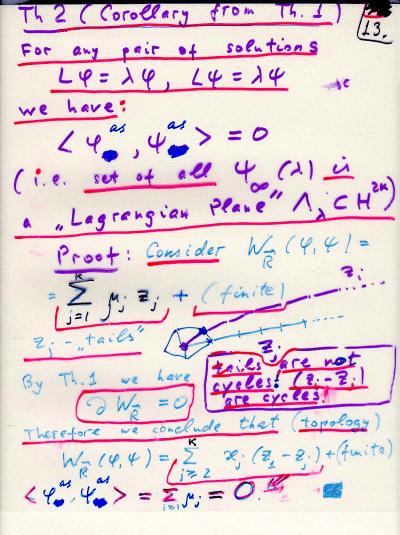 Th 2 (Corollary from Th. 1)
13.
For any pair of solutions
Lφ = λφ, Lψ = λψ
we have:
< φ^as_∞, ψ^as_∞ > = 0
(i.e. set of all ψ_∞(λ) is
a „Lagrangian Plane" Λ_λ ⊂ H^2K)
Proof: Consider W_R⃗ (φ,ψ) =
= Σ_{j=1}^K μ_j z_j + (finite)
z_j - „tails"
z_i
z_j
tails are not
cycles! (z_i - z_j)
are cycles.
By Th.1 we have
∂ W_R⃗ = 0
Therefore we conclude that (topology)
W_R⃗ (φ,ψ) = Σ_{j≥2}^K ϰ_j (z_1 - z_j) + (finite)
< φ^as_∞, ψ^as_∞ > = Σ_{j≥1} μ_j = 0.